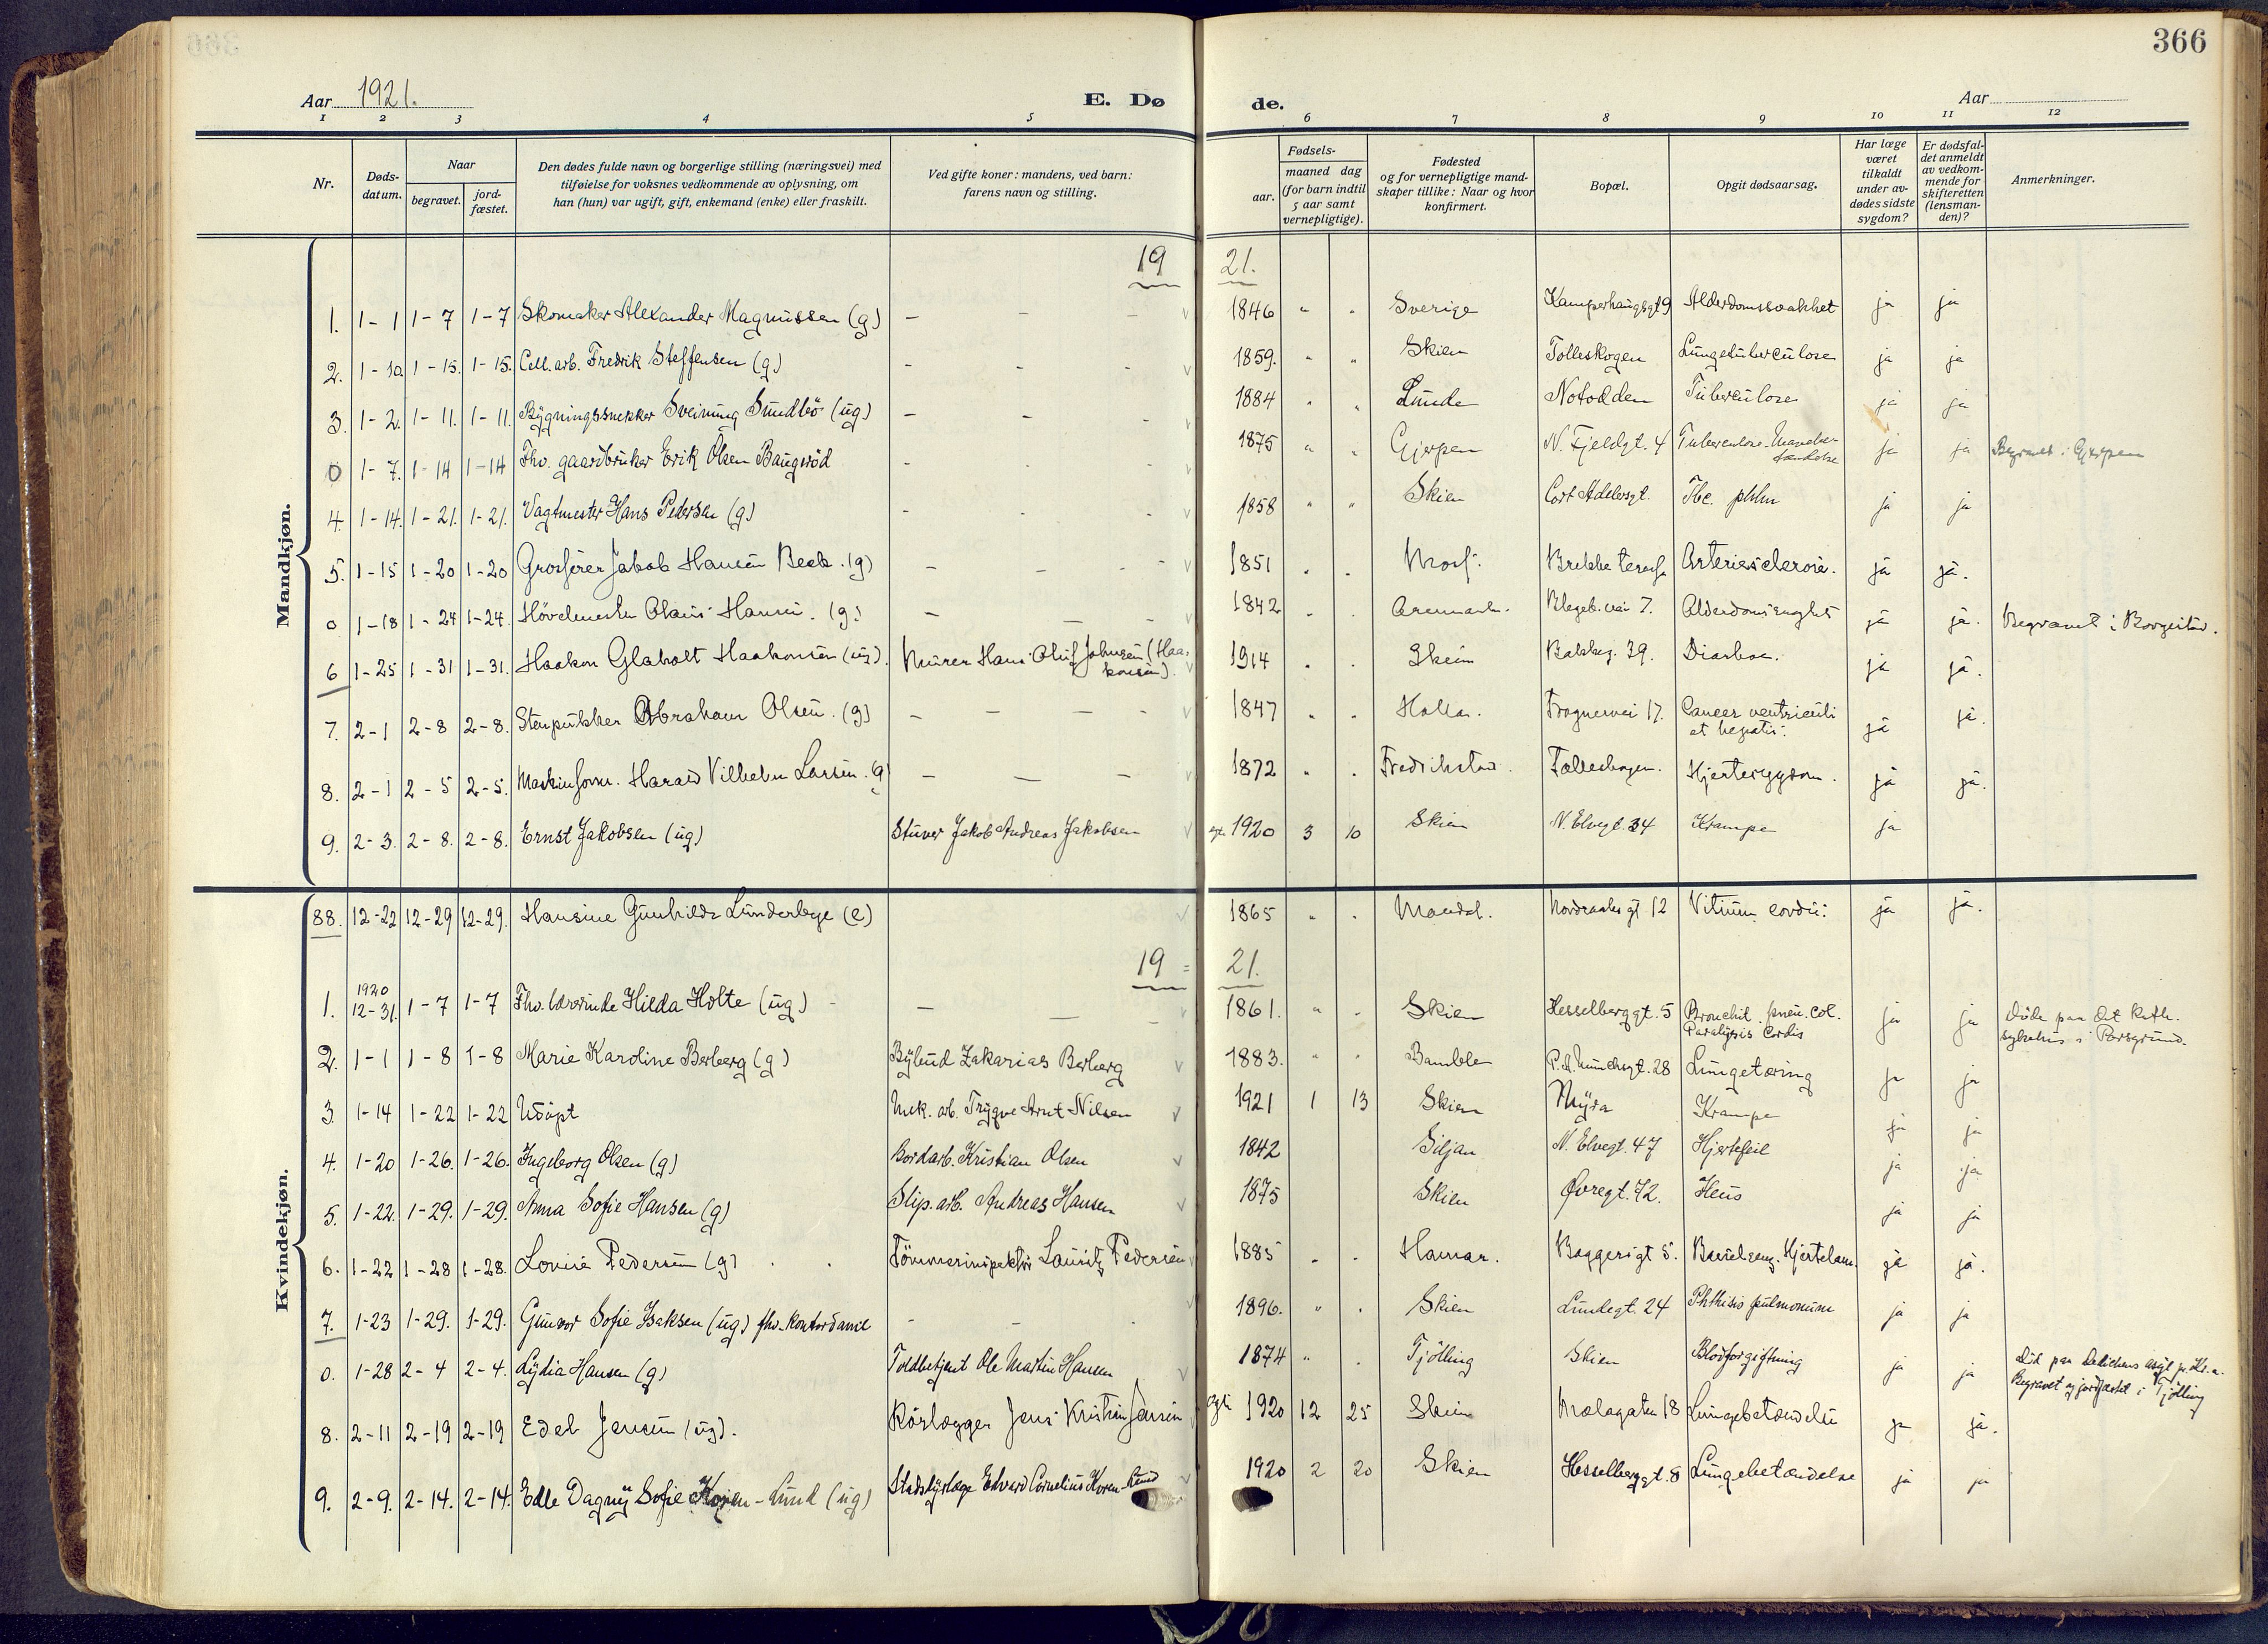 366
Aar 1921.
E. Dø de.
Aar
1 2 3 4 5 6 7 8 9 10 11 12
Nr.
Døds-
datum.
Naar
begravet.
jord-
fæstet.
Den dødes fulde navn og borgerlige stilling (næringsvei) med
tilføielse for voksnes vedkommende av oplysning, om
han (hun) var ugift, gift, enkemand (enke) eller fraskilt.
Ved gifte koner: mandens, ved barn:
farens navn og stilling.
Fødsels-
aar.
maaned dag
(for barn indtil
5 aar samt
vernepligtige).
Fødested
og for vernepligtige mand-
skaper tillike: Naar og hvor
konfirmert.
Bopæl.
Opgit dødsaarsag.
Har læge
været
tilkaldt
under av-
dødes sidste
sygdom?
Er dødsfal-
det anmeldt
av vedkom-
mende for
skifteretten
(lensman-
den)?
Anmerkninger.
Mandkjøn.
19 21.
1. 1-1 1-7 1-7 Skomaker Alexander Magnussen (g) — — — 1846 " " Sverige Kamperhaugsgt 9 Alderdomssvakhet ja ja
2. 1-10 1-15. 1-15. Cell. arb. Fredrik Steffensen (g) - - - 1859. " " Skien Tolleskogen Lungetuberculose ja ja
3. 1-2. 1-11. 1-11. Bygningssnekker Sveinung Sundbö (ug) - - - 1884 " " Lunde Notodden Tuberculose ja ja
0 1-7. 1-14 1-14 Fhv. gaardbruker Erik Olsen Baugsröd - - - 1875 " " Gjerpen N. Fjeldgt. 4 Tuberculose ja ja Begravet i Gjerpen
4. 1-14. 1-21. 1-21. Vagtmester Hans Pedersen (g) - - - 1858 " " Skien Cort Adelersgt. Tbc. ja ja
5. 1-15 1-20 1-20 Grosserer Jakob Hansen Beck. (g) — — - 1851 " " Moss. Brekke terasse Arteriesclerose. ja ja.
0 1-18 1-24 1-24. Hövelmester Olaus Hansen. (g) — — - 1842 " " Aremark. Blegeb. vei 7. ja ja. Begravet i Borgestad.
6 1-25 1-31 1-31. Haakon Glaholt Haakonsen (ug). Murer Hans Oluf Johnsen (Haa-
konsen). 1914 " " Skien Bakkeg. 39. ja ja.
7. 2-1 2-8 2-8. Stenpukker Abraham Olsen. (g) — — — - 1847 " " Holla. Frognervei 17. Cancer ventriculi
et hepatis. ja ja.
8. 2-1 2-5 2-5. Maskinform. Harald Vilhelm Larsen. (g) — — — 1872 " " Fredrikstad. Follestogen. Hjertesygdom. ja ja.
9. 2-3. 2-8. 2-8. Ernst Jakobsen (ug) Stuver Jakob Andreas Jakobsen 1920 3 10 Skien N. Elvegt. 34 Krampe ja
Kvindekjøn.
88. 12-22 12-29 12-29. Hansine Gunhilde Lunderbye (e) 1865 " " Mandal. Nordraaks gt 12 Vitium cordis. ja ja.
19 = 21.
1. 1920
12-31. 1-7 1-7 Fhv. lærerinde Hilda Holte (ug) — — - 1861. " " Skien Hesselberggt. 5 Bronchit. pneu. col.
Paralysis Cordis ja ja Döde paa det kath.
sykehus i Porsgrund.
2. 1-1 1-8 1-8 Marie Karoline Berberg (g) Bybud Zakarias Berberg 1883. " " Bamble P.A. Munchsgt. 28 Lungetæring ja ja
3. 1-14 1-22 1-22 Udöpt Mek. arb. Trygve Arnt Nilsen 1921 1 13 Skien Myra Krampe ja ja
4. 1-20 1-26. 1-26. Ingeborg Olsen (g) Bordarb. Kristian Olsen 1842 Siljan N. Elvegt. 47 Hjertefeil ja ja
5. 1-22. 1-29. 1-29. Anna Sofie Hansen (g) Slip. arb. Andreas Hansen 1875 Skien Øvregt. 42. Ileus ja ja
6. 1-22 1-28 1-28. Lovise Pedersen (g) Tömmerinspektör Lauritz Pedersen 1885 " " Hamar. Baggersgt 5. Barselseng. Hjertelam. ja ja.
7. 1-23 1-29. 1-29. Gunvor Sofie Isaksen (ug) fhv. kontordame - - - 1896. " " Skien Lundegt. 24 Phthisis pulmonum ja ja
0. 1-28 2-4 2-4. Lydia Hansen (g) Toldbetjent Ole Martin Hansen 1874 " " Tjölling Skien Blodforgiftning ja ja Död paa Dedichens asyl pr. Kr.a.
Begravet og jordfæstet i Tjölling
8. 2-11 2-19 2-19 Edel Jensen (ug). Rörlægger Jens Kristian Jensen 1920 12 25 Skien Mælagaten 18 Lungebetændelse ja ja.
9. 2-9. 2-14. 2-14. Edle Dagny Sofie Koren-Lund (ug) Stadsdyrlæge Edvard Cornelius Koren-Lund 1920 2 20 Skien Hesselberggt. 8 Lungebetændelse ja ja